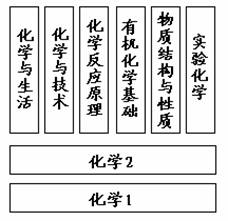 化学与生活
化学与技术
化学反应原理
有机化学基础
物质结构与性质
实验化学
化学2
化学1